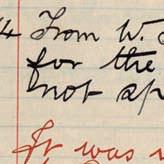 4 From W.
for the
not sp
It was